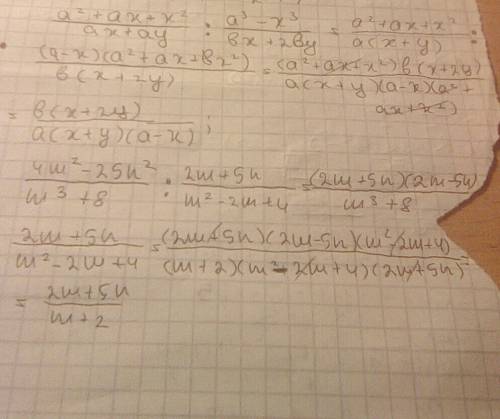 (a²+ax+x²)/(ax+ay) : (a³-x³)/(вx+2вy) = (a²+ax+x²)/(a(x+y)) :
(a-x)(a²+ax+x²)/(в(x+2y)) = (a²+ax+x²)в(x+2y)/(a(x+y)(a-x)(a²+ax+x²))
= в(x+2y)/(a(x+y)(a-x));
(4m²-25n²)/(m³+8) : (2m+5n)/(m²-2m+4) = (2m+5n)(2m-5n)/(m³+8)
(2m+5n)/(m²-2m+4) = (2m+5n)(2m-5n)(m²-2m+4)/((m+2)(m²-2m+4)(2m+5n)) =
= (2m+5n)/(m+2)